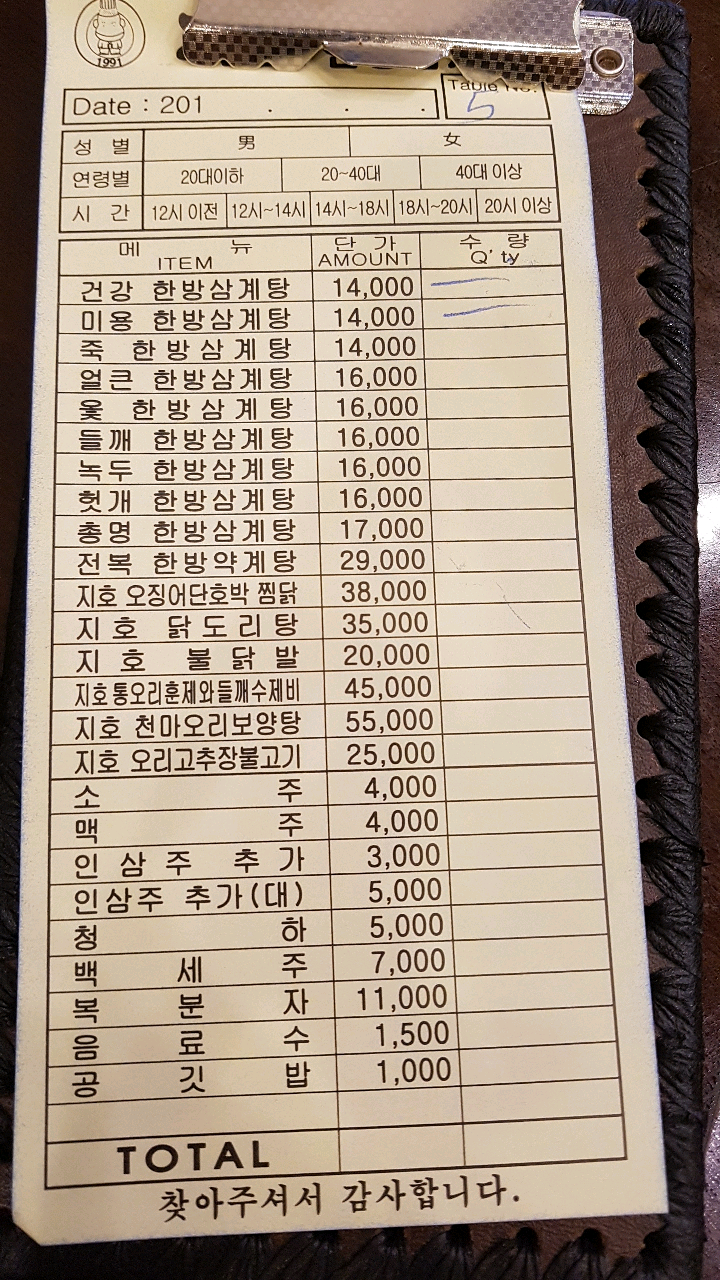 1991
Table No.
5
Date : 201 . . .
성 별 男 女
연령별 20대이하 20~40대 40대 이상
시 간 12시 이전 12시~14시 14시~18시 18시~20시 20시 이상
메 뉴 단 가 수 량
ITEM AMOUNT Q'ty
건강 한방삼계탕 14,000
미용 한방삼계탕 14,000
죽 한방삼계탕 14,000
얼큰 한방삼계탕 16,000
옻 한방삼계탕 16,000
들깨 한방삼계탕 16,000
녹두 한방삼계탕 16,000
헛개 한방삼계탕 16,000
총명 한방삼계탕 17,000
전복 한방약계탕 29,000
지호 오징어단호박 찜닭 38,000
지호 닭도리탕 35,000
지호 불닭발 20,000
지호통오리훈제와들깨수제비 45,000
지호 천마오리보양탕 55,000
지호 오리고추장불고기 25,000
소 주 4,000
맥 주 4,000
인삼주 추가 3,000
인삼주 추가(대) 5,000
청 하 5,000
백 세 주 7,000
복 분 자 11,000
음 료 수 1,500
공 깃 밥 1,000
TOTAL
찾아주셔서 감사합니다.